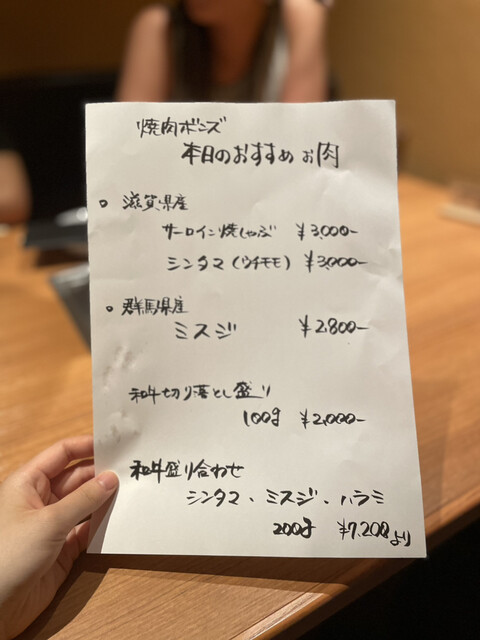 焼肉ボンズ
本日のおすすめお肉
○ 滋賀県産
サーロイン焼しゃぶ ¥3,000-
シンタマ(ウチモモ) ¥3,000-
○ 群馬県産
ミスジ ¥2,800-
和牛切り落とし盛り
100g ¥2,000-
和牛盛り合わせ
シンタマ、ミスジ、ハラミ
200g ¥7,200より